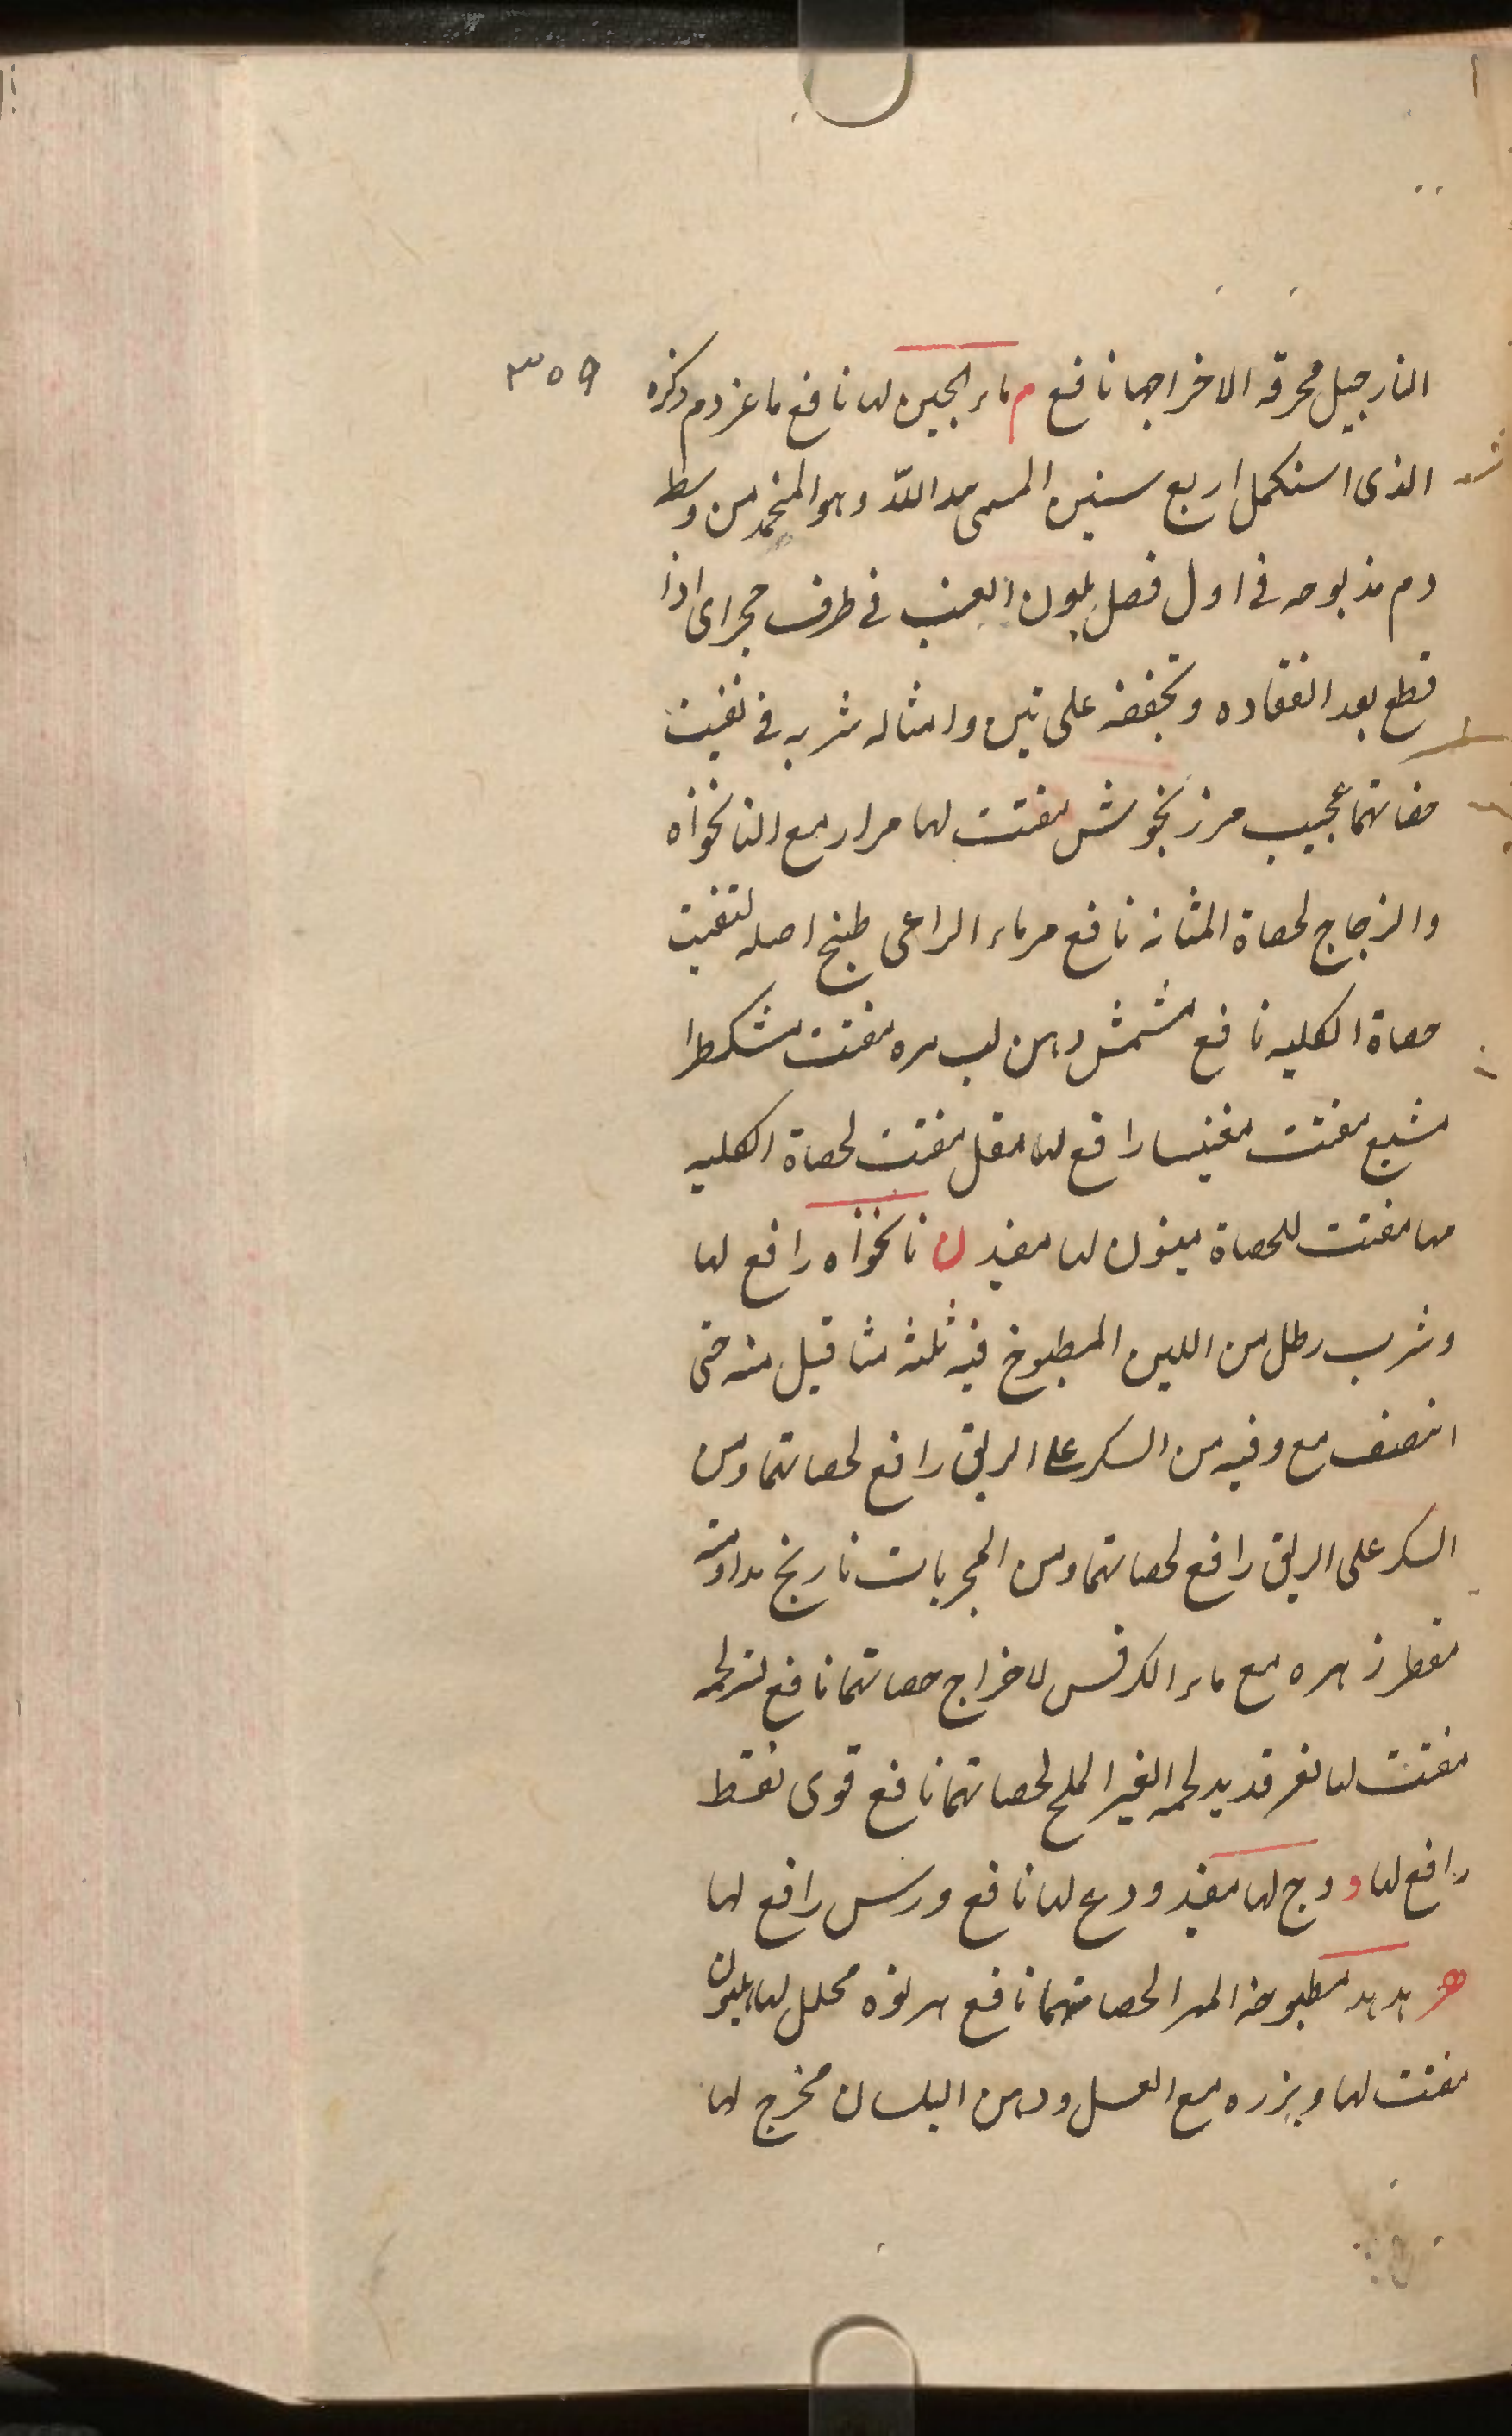 ٣٥٩
النارجيل محرقه الاخراجها نافع م ماء الجبن لها نافع ماعز دم ذكره
الذى استكمل اربع سنين المسمى يد اللّه وهو المنجمد من وسط
دم مذبوحه فى اول فصل بلون العنب فى ظرف حجراى اذا
قطع بعد انعقاده وتجففه على تين وامثاله شربه فى تفتيت
حصاتهما عجيب مرزنجوش مفتت لها مرار مع النانخواه
والزجاج لحصاة المثانه نافع مرماء الراعى طبخ اصله لتفتيت
حصاة الكليه نافع مشمش دهن لب مره مفتت مشكطرا
مشيع مفتت مغنيسا رافع لها مقل مفتت لحصاة الكليه
مها مفتت للحصاة ميفون لها مفيد ن نانخواه رافع لها
وشرب رطل من اللبن المطبوخ فيه ثلثه مثاقيل منه حتى
انتصف مع وقيه من السكر على الريق رافع لحصاتهما ومن
السكر على الريق رافع لحصاتهما ومن المجربات نارنج مداومة
مقطر زهره مع ماء الكرفس لاخراج حصاتهما نافع لحمه
مفتت لها نغر قديد لحمه الغير الملح لحصاتهما نافع قوى نفط
رافع لها و وج لها مفيد ودع لها نافع ورس رافع لها
هـ هدهد مطبوخه المهرا لحصاتهما نافع هرنوه محلل لها هليون
مفتت لها وبزره مع العسل ودهن البلسان مخرج لها